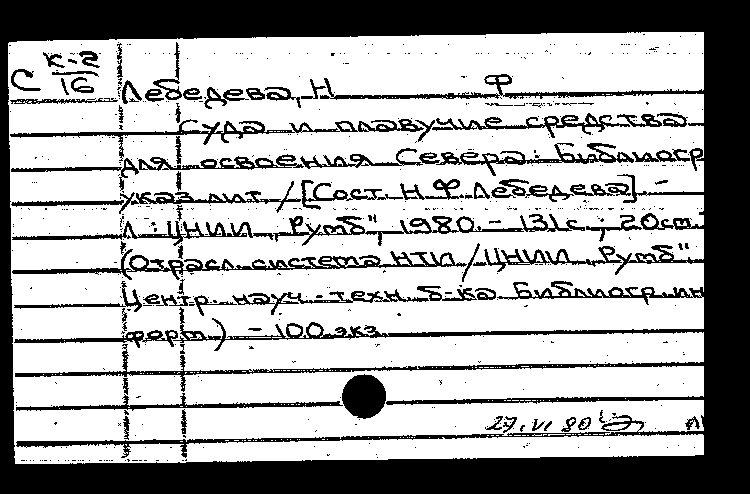 С К-2
16
Лебедева, Н Ф
Суда и плавучие средства
для освоения Севера: Библиогр
указ лит / [Сост. Н Ф Лебедева] –
Л : ЦНИИ „Румб", 1980. – 131 с ; 20 см.
(Отрасл. система НТИ / ЦНИИ „Румб"
Центр. науч.-техн. б-ка Библиогр. ин
форм) – 100 экз
27. VI 80